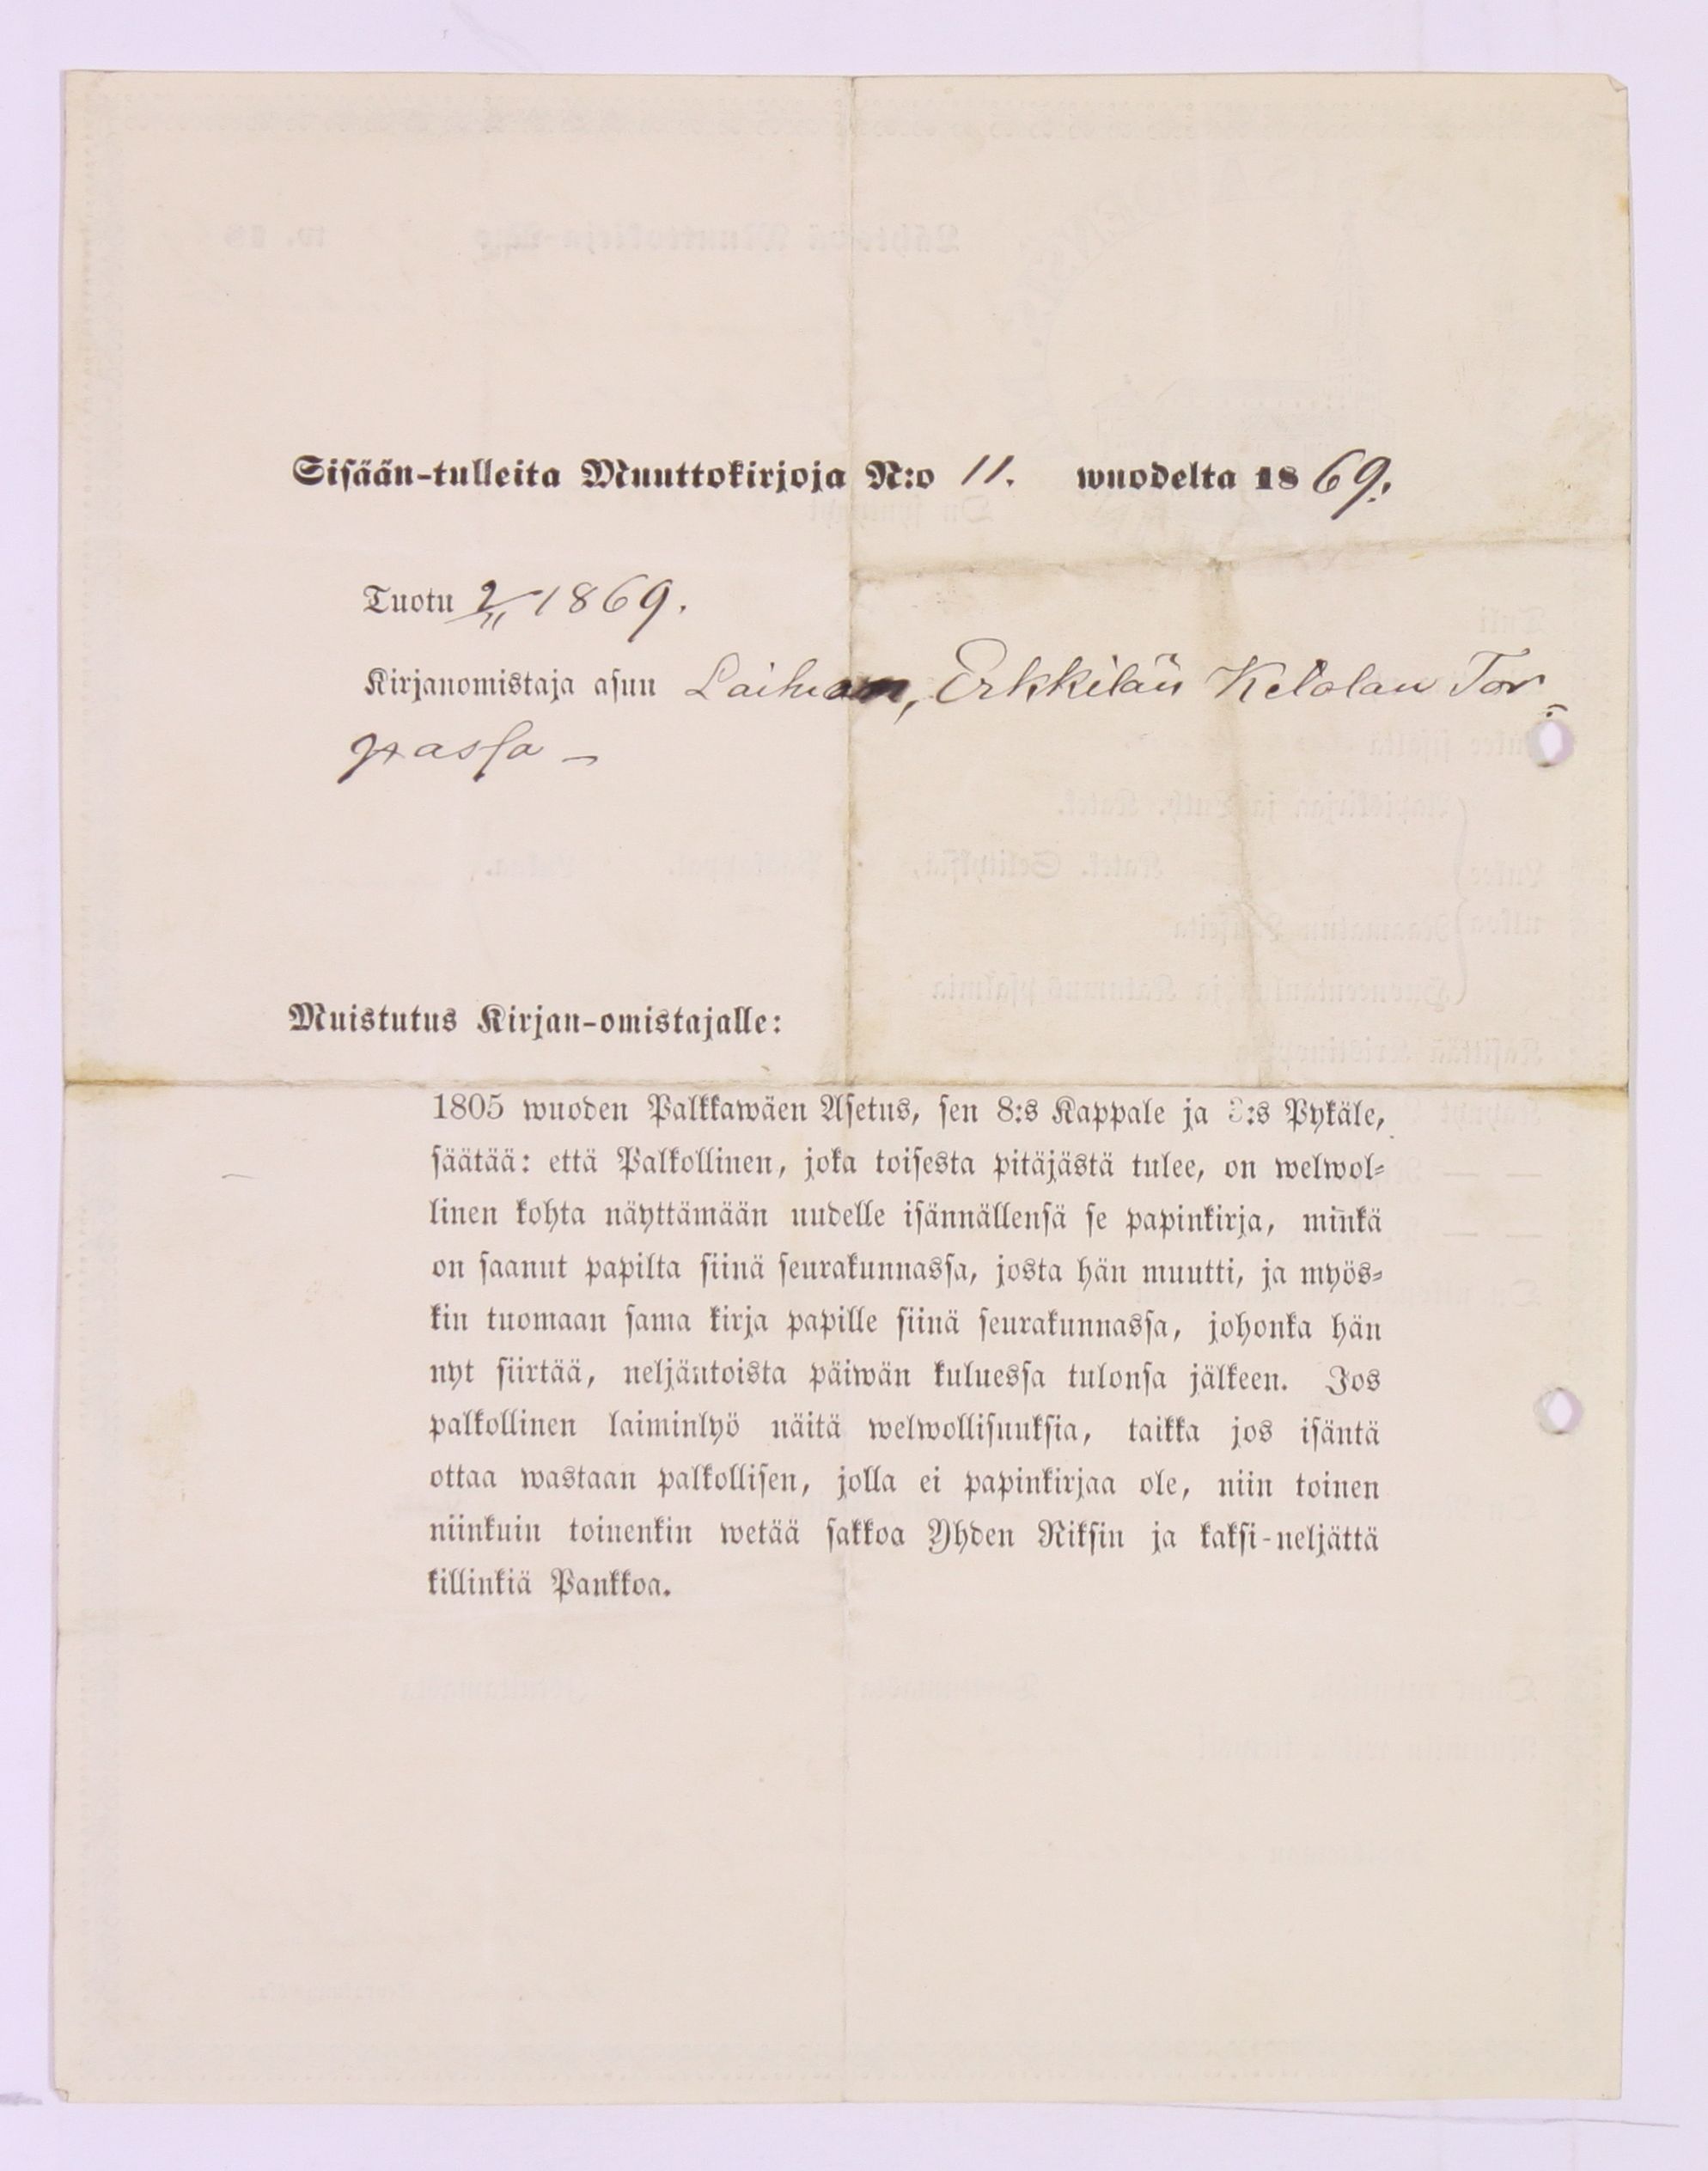 Sisään-tulleita Muuttokirjoja N:o 11. wuodelta 1869.
Tuotu 2/11 1869.
Kirjanomistaja asuu Laihian, Erkkilän Ketolan Tor-
passa –
Muistutus Kirjan-omistajalle:
1805 wuoden Palkkawäen Asetus, sen 8:s Kappale ja 3:s Pykäle,
säätää: että Palkollinen, joka toisesta pitäjästä tulee, on welwol-
linen kohta näyttämään uudelle isännällensä se papinkirja, minkä
on saanut papilta siinä seurakunnassa, josta hän muutti, ja myös-
kin tuomaan sama kirja papille siinä seurakunnassa, johonka hän
nyt siirtää, neljäntoista päiwän kuluessa tulonsa jälkeen. Jos
palkollinen laiminlyö näitä welwollisuuksia, taikka jos isäntä
ottaa wastaan palkollisen, jolla ei papinkirjaa ole, niin toinen
niinkuin toinenkin wetää sakkoa Yhden Riksin ja kaksi-neljättä
killinkiä Pankkoa.